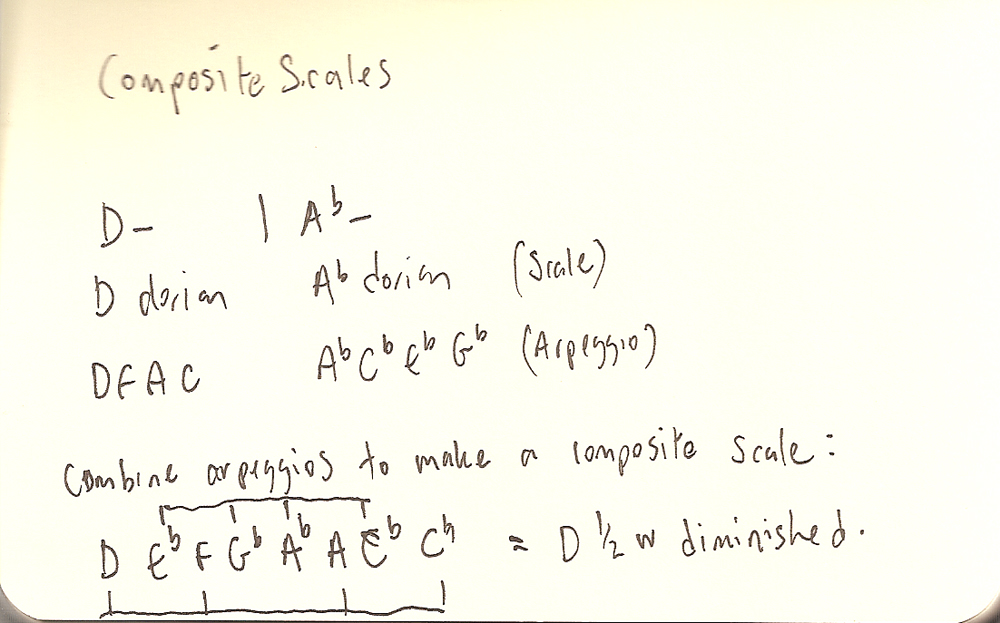 Composite Scales
D– | A♭–
D dorian A♭ dorian (Scale)
D F A C A♭ C♭ E♭ G♭ (Arpeggio)
Combine arpeggios to make a composite scale:
D E♭ F G♭ A♭ A C♭ C♮ = D ½ w diminished.